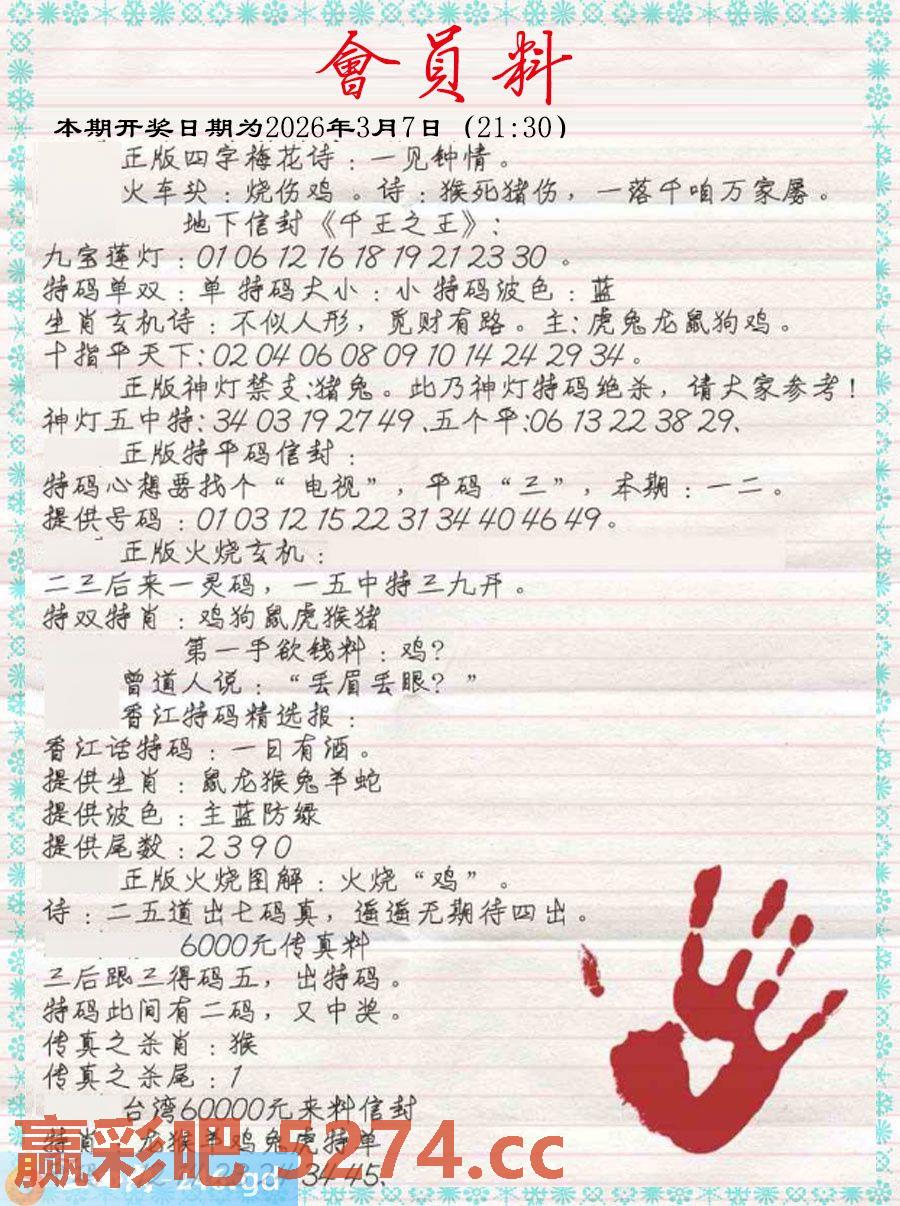 會員料
本期开奖日期为2026年3月7日（21:30）
正版四字梅花诗：一见钟情。
火车头：烧伤鸡。诗：猴死猪伤，一落千咱万家屡。
地下信封《千王之王》：
九宝莲灯：01 06 12 16 18 19 21 23 30 。
特码单双：单 特码大小：小 特码波色：蓝
生肖玄机诗：不似人形，觅财有路。主：虎兔龙鼠狗鸡。
十指平天下：02 04 06 08 09 10 14 24 29 34 。
正版神灯禁支：猪兔。此乃神灯特码绝杀，请大家参考！
神灯五中特：34 03 19 27 49 、五个平：06 13 22 38 29、
正版特平码信封：
特码心想要找个“ 电视”，平码“三”，本期：一二。
提供号码：01 03 12 15 22 31 34 40 46 49 。
正版火烧玄机：
二三后来一灵码，一五中特三九开。
特双特肖：鸡狗鼠虎猴猪
第一手欲钱料：鸡？
曾道人说：“丢眉丢眼？”
香江特码精选报：
香江话特码：一日有酒。
提供生肖：鼠龙猴兔羊蛇
提供波色：主蓝防绿
提供尾数：2 3 9 0
正版火烧图解：火烧“鸡”。
诗：二五道出七码真，遥遥无期待四出。
6000元传真料
三后跟三得码五，出特码。
特码此间有二码，又中奖。
传真之杀肖：猴
传真之杀尾：1
台湾60000元来料信封
特肖：龙猴羊鸡兔虎特单
34 45、
赢彩吧 5274.cc